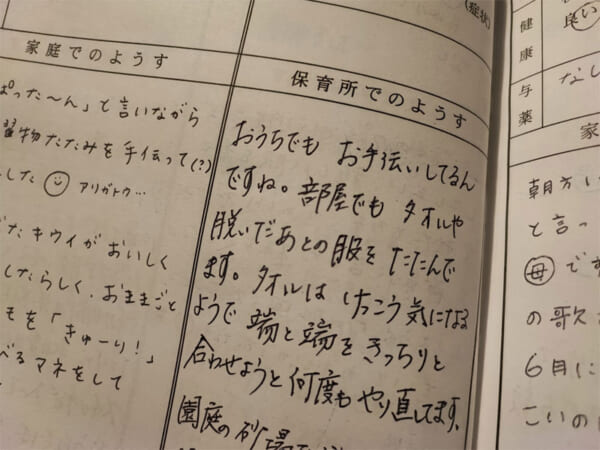 (症状)
家庭でのようす
ぱった～ん」と言いながら
物たたみを手伝って(?)
した アリガトウ…
たキウイがおいしく
したらしく、おままごと
モを「きゅーり!」
べるマネをして
保育所でのようす
おうちでも お手伝いしてるん
ですね。部屋でも タオルや
脱いだあとの服を たたんで
ます。タオルは けっこう気になる
ようで 端と端を きっちりと
合わせようと何度もやり直してます。
園庭の砂場で
健康
良い
与薬
なし
家
朝方
と言っ
母です
の歌
6月に
こいの